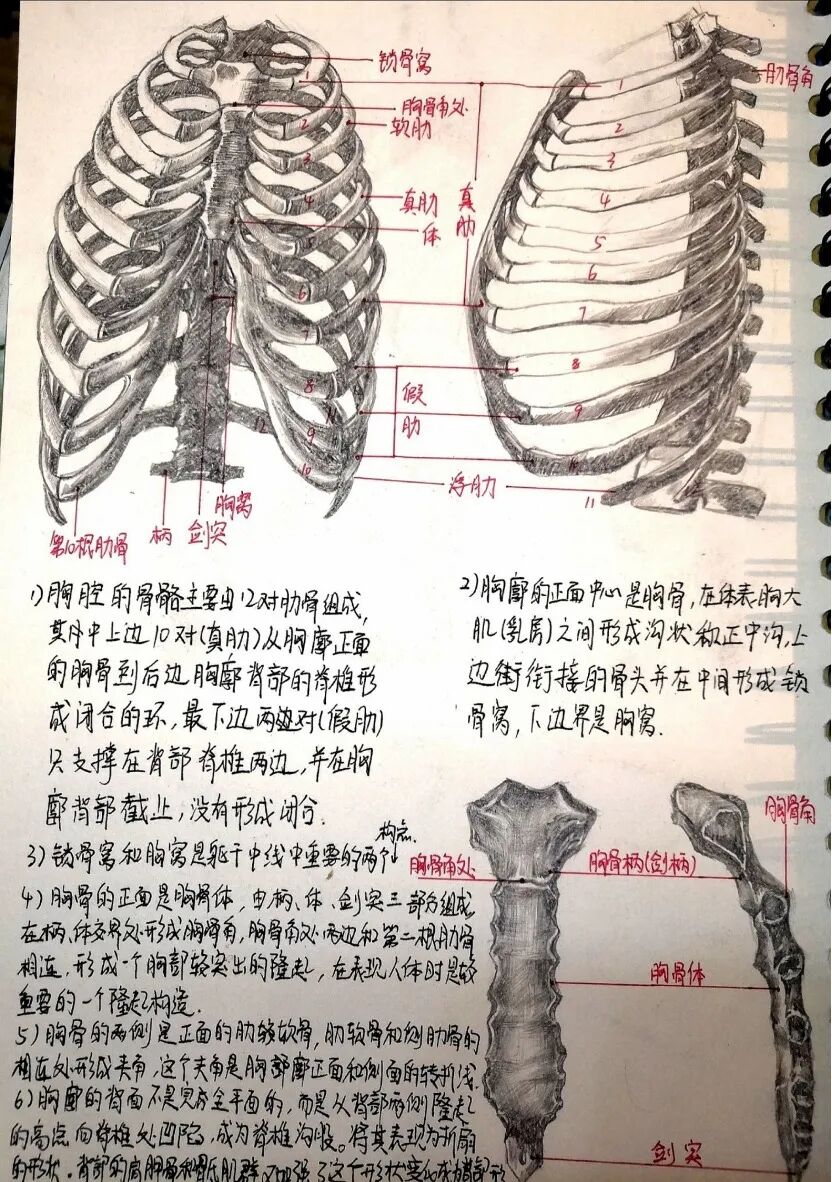 锁骨窝
肋骨角
胸骨角处
软肋
真肋
体
真肋
1
2
3
4
5
6
7
8
9
10
11
12
1
2
3
4
5
6
7
8
9
10
11
假肋
浮肋
胸窝
第10根肋骨
柄
剑突
1)胸腔的骨骼主要由12对肋骨组成,
其中上边10对(真肋)从胸廓正面
的胸骨到后边胸廓背部的脊椎形
成闭合的环,最下边两对(假肋)
只支撑在背部脊椎两边,并在胸
廓背部截止,没有形成闭合.
2)胸廓的正面中心是胸骨,在体表胸大
肌(乳房)之间形成沟状称正中沟,上
边衔接的骨头并在中间形成锁
骨窝,下边界是胸窝.
3)锁骨窝和胸窝是躯干中线中重要的两个构点.
4)胸骨的正面是胸骨体,由柄、体、剑突三部分组成,
在柄、体交界处形成胸骨角,胸骨角处两边和第二根肋骨
相连,形成一个胸部较突出的隆起,在表现人体时是较
重要的一个隆起构造.
5)胸骨的两侧是正面的肋软骨,肋软骨和侧肋骨的
相连处形成夹角,这个夹角是胸部廓正面和侧面的转折线.
6)胸廓的背面不是完全平面的,而是从背部两侧隆起
的高点向脊椎处凹陷,成为脊椎沟。将其表现为折扇
的形状.背部的肩胛骨和 肌群又加强了这个形状变化成为背部形
胸骨角处
胸骨柄(剑柄)
胸骨角
胸骨体
剑突